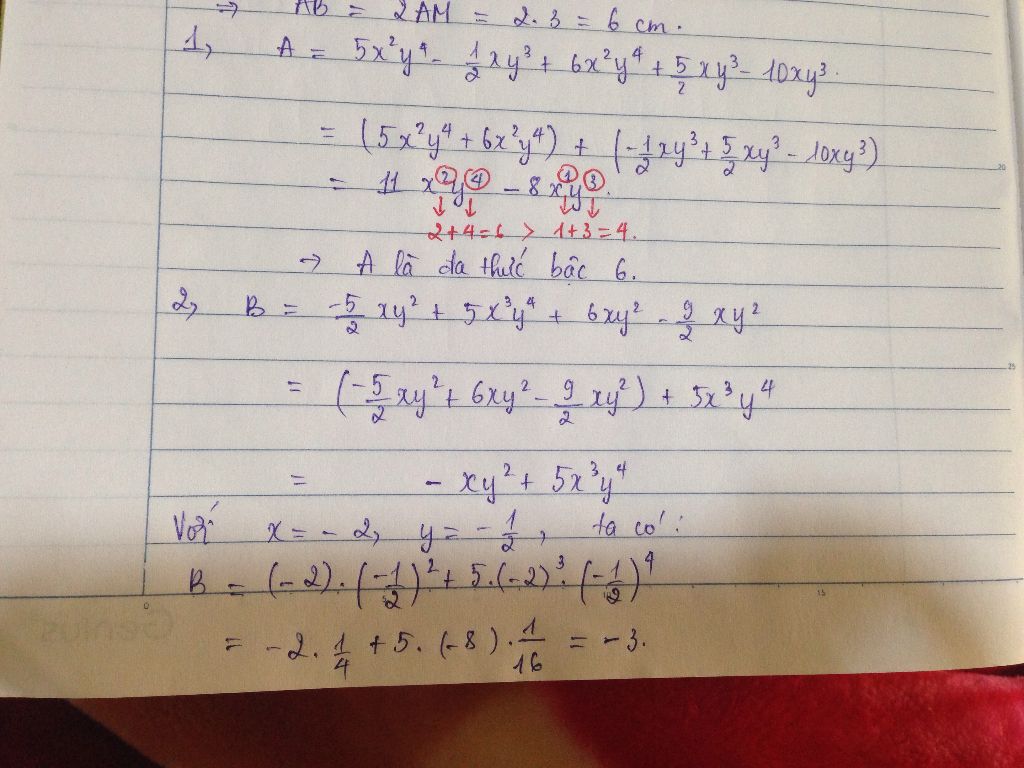 ⇒ AB = 2AM = 2.3 = 6 cm.
1, A = 5x²y⁴ - 1/2 xy³ + 6x²y⁴ + 5/2 xy³ - 10xy³.
= (5x²y⁴ + 6x²y⁴) + (-1/2 xy³ + 5/2 xy³ - 10xy³)
= 11 x²y⁴ - 8x¹y³.
↓ ↓ ↓ ↓
2+4=6 > 1+3=4.
→ A là đa thức bậc 6.
2, B = -5/2 xy² + 5x³y⁴ + 6xy² - 9/2 xy²
= (-5/2 xy² + 6xy² - 9/2 xy²) + 5x³y⁴
= - xy² + 5x³y⁴
Với x = -2, y = -1/2, ta có:
B = (-2).(-1/2)² + 5.(-2)³.(-1/2)⁴
= -2.1/4 + 5.(-8).1/16 = -3.
20
25
0 15
Genius